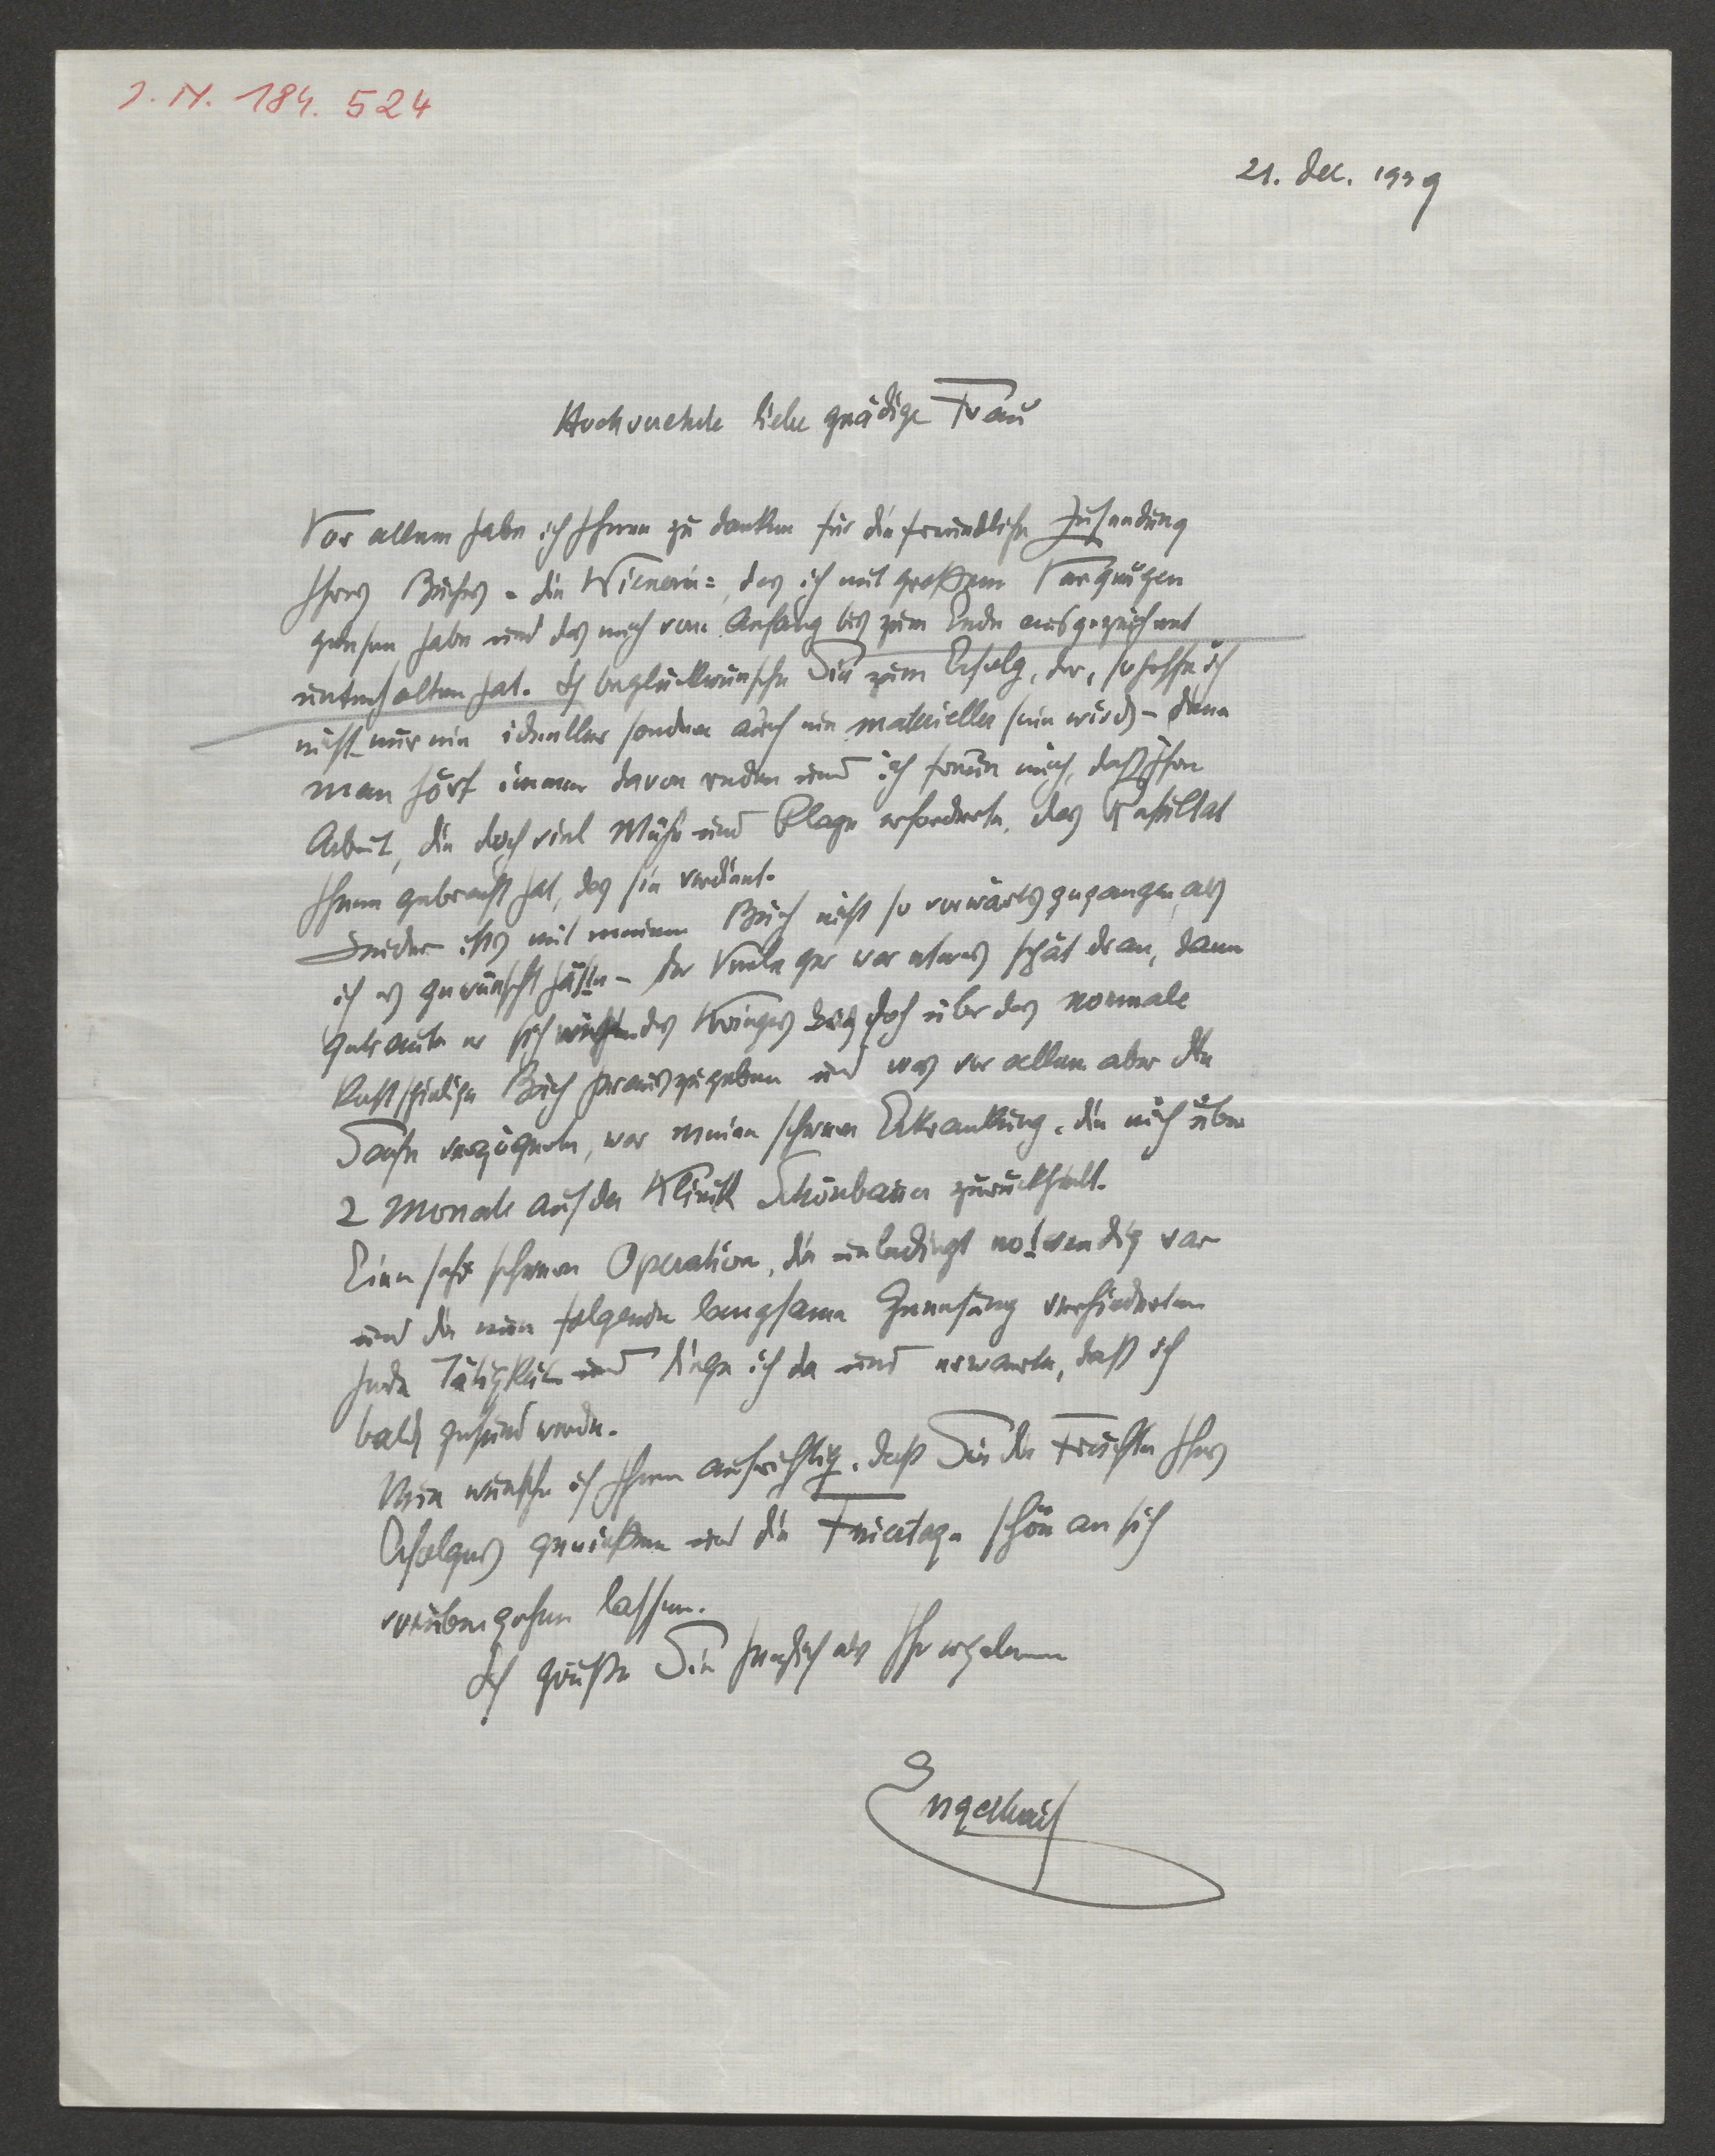 J. N. 184.524
21. Dec. 1939
Hochverehrte liebe gnädige Frau
Vor allem habe ich Ihnen zu danken für die freundliche Zusendung
Ihres Buches - die Wienerin =, das ich mit großem Vergnügen
gelesen habe und das mich vom Anfang bis zum Ende ausgezeichnet
unterhalten hat. Ich beglückwünsche Sie zum Erfolg, der, so hoffe ich
nicht nur ein ideeller sondern auch ein materieller sein wird - denn
man hört immer davon reden und ich freue mich, daß Ihre
Arbeit, die doch viel Mühe und Plage erforderte, das Resultat
Ihnen gebracht hat, das sie verdient.
Leider ists mit meinem Buch nicht so vorwärts gegangen, als
ich es gewünscht hätte - der Verleger war etwas spät dran, dann
getraute er sich des Krieges doch über das normale
kostspielige Buch herauszugeben und was vor allem aber die
Sache verzögerte, war meine schwere Erkrankung, die mich über
2 Monate auf der Klinik Schönbauer zurückhielt.
Eine sehr schwere Operation, die unbedingt notwendig war
und die nun folgende langsame Genesung verhinderten
jede Tätigkeit und liege ich da und erwarte, daß ich
bald gesund werde.
Nun wünsche ich Ihnen aufrichtig, daß Sie die Früchte Ihres
Erfolges genießen und die Feiertage schön an sich
vorübergehen lassen.
Ich grüße Sie herzlich als Ihr ergebener
Engelhart